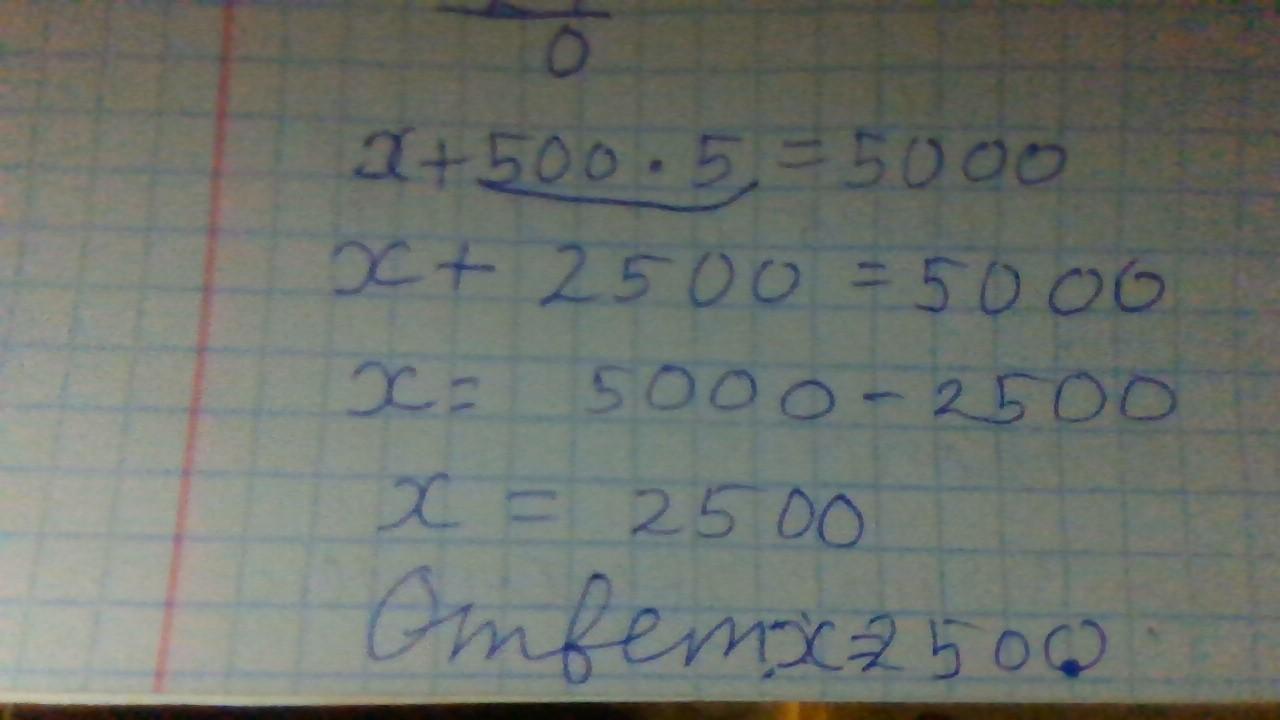 0
x+500·5=5000
x+2500=5000
x=5000-2500
x=2500
Ответ: x=2500